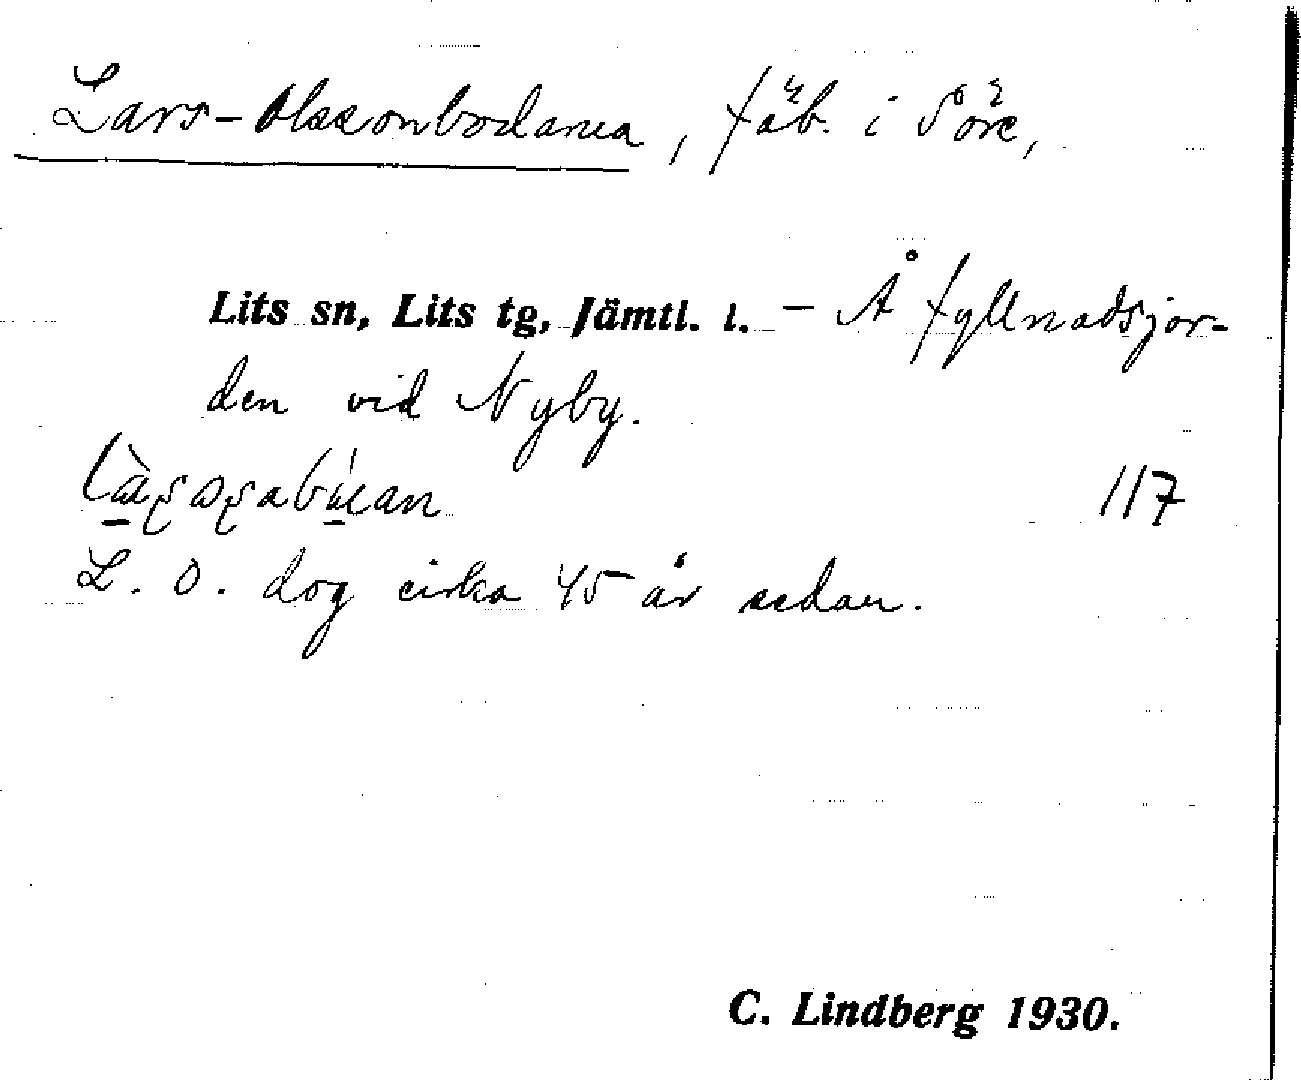 Lars-Olssonbodarna, fäb. i Söre,
Lits sn, Lits tg, Jämtl. l. - Å fyllnadsjor-
den vid Nyby.
117
L. O. dog cirka 45 år sedan.
C. Lindberg 1930.